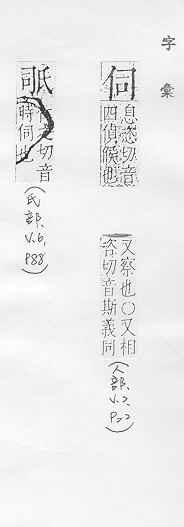 字彙
伺
息恣切音
四偵候也
又察也○又相
咨切音斯義同
(人部、V.2、P22)
切音
時伺也
(氏部、V.6、P88)